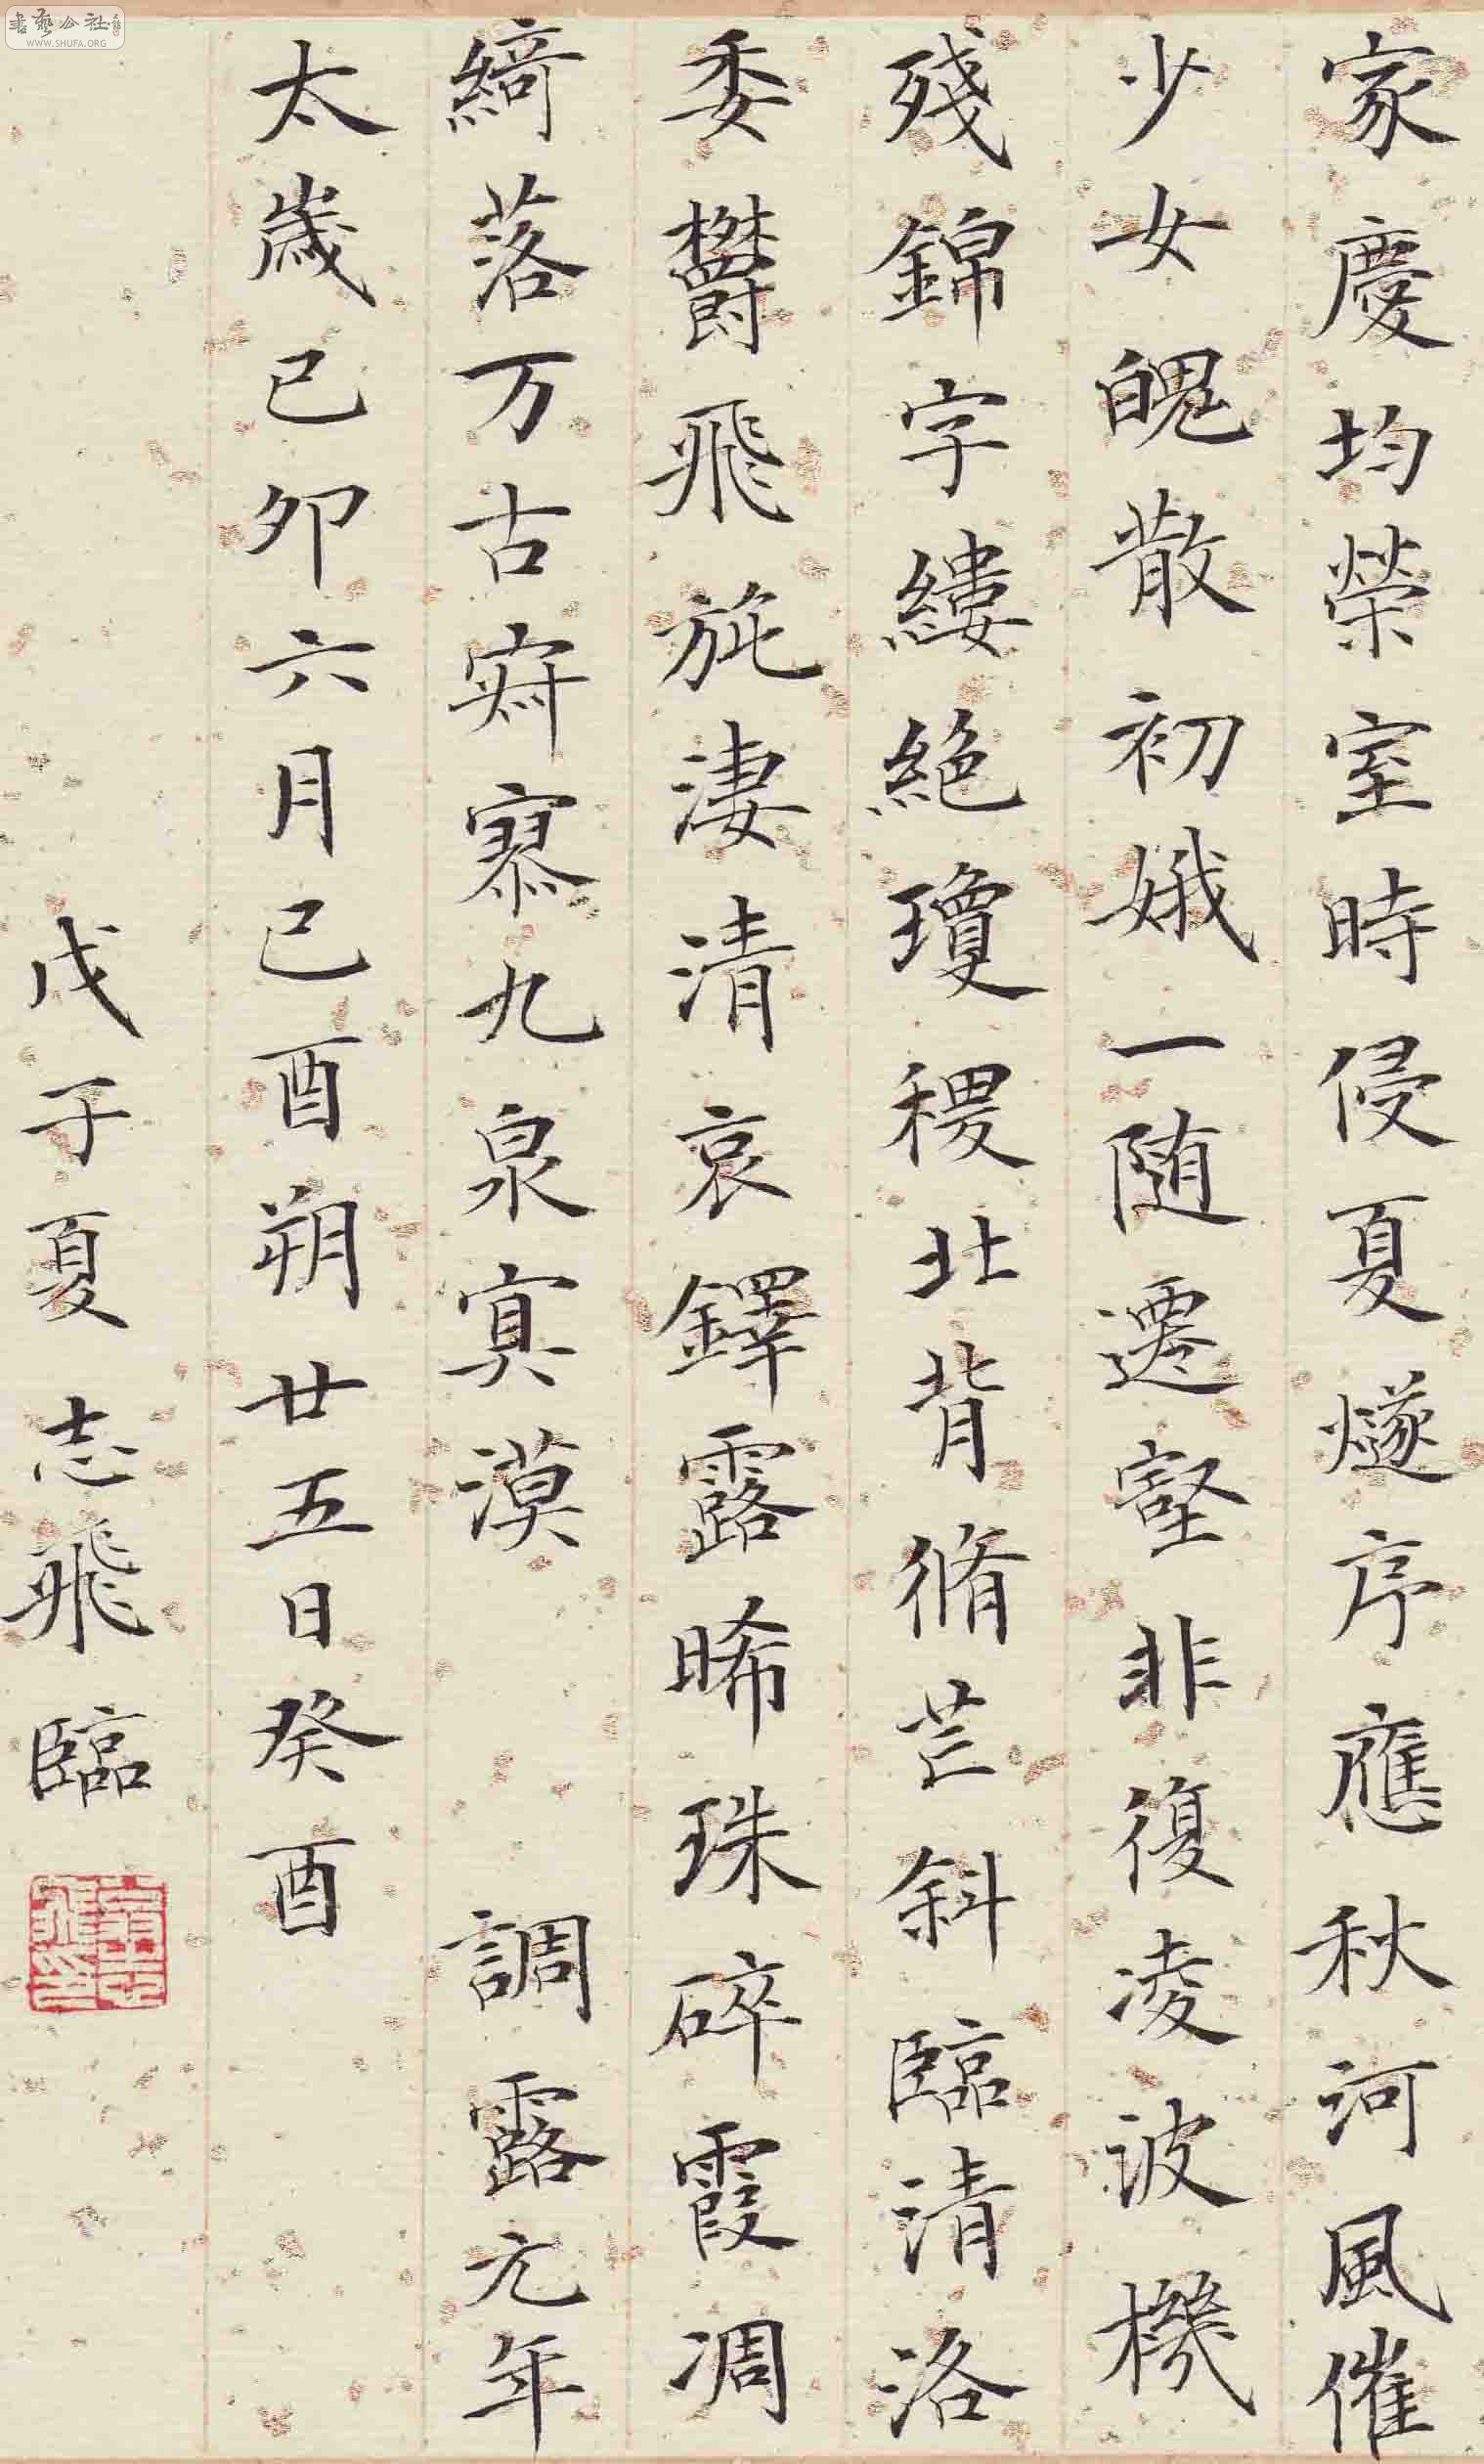 家慶均榮室時侵夏燧序應秋河風催
少女魄散初娥一随遷壑非復凌波機
殘錦字縷絕瓊稷北背脩芒斜臨清洛
委欝飛旐淒清哀鐸露晞珠碎霞凋
綺落万古寂寥九泉寞漠 調露元年
太歲己卯六月己酉朔廿五日癸酉
戊子夏 志飛臨
书艺公社
WWW.SHUFA.ORG